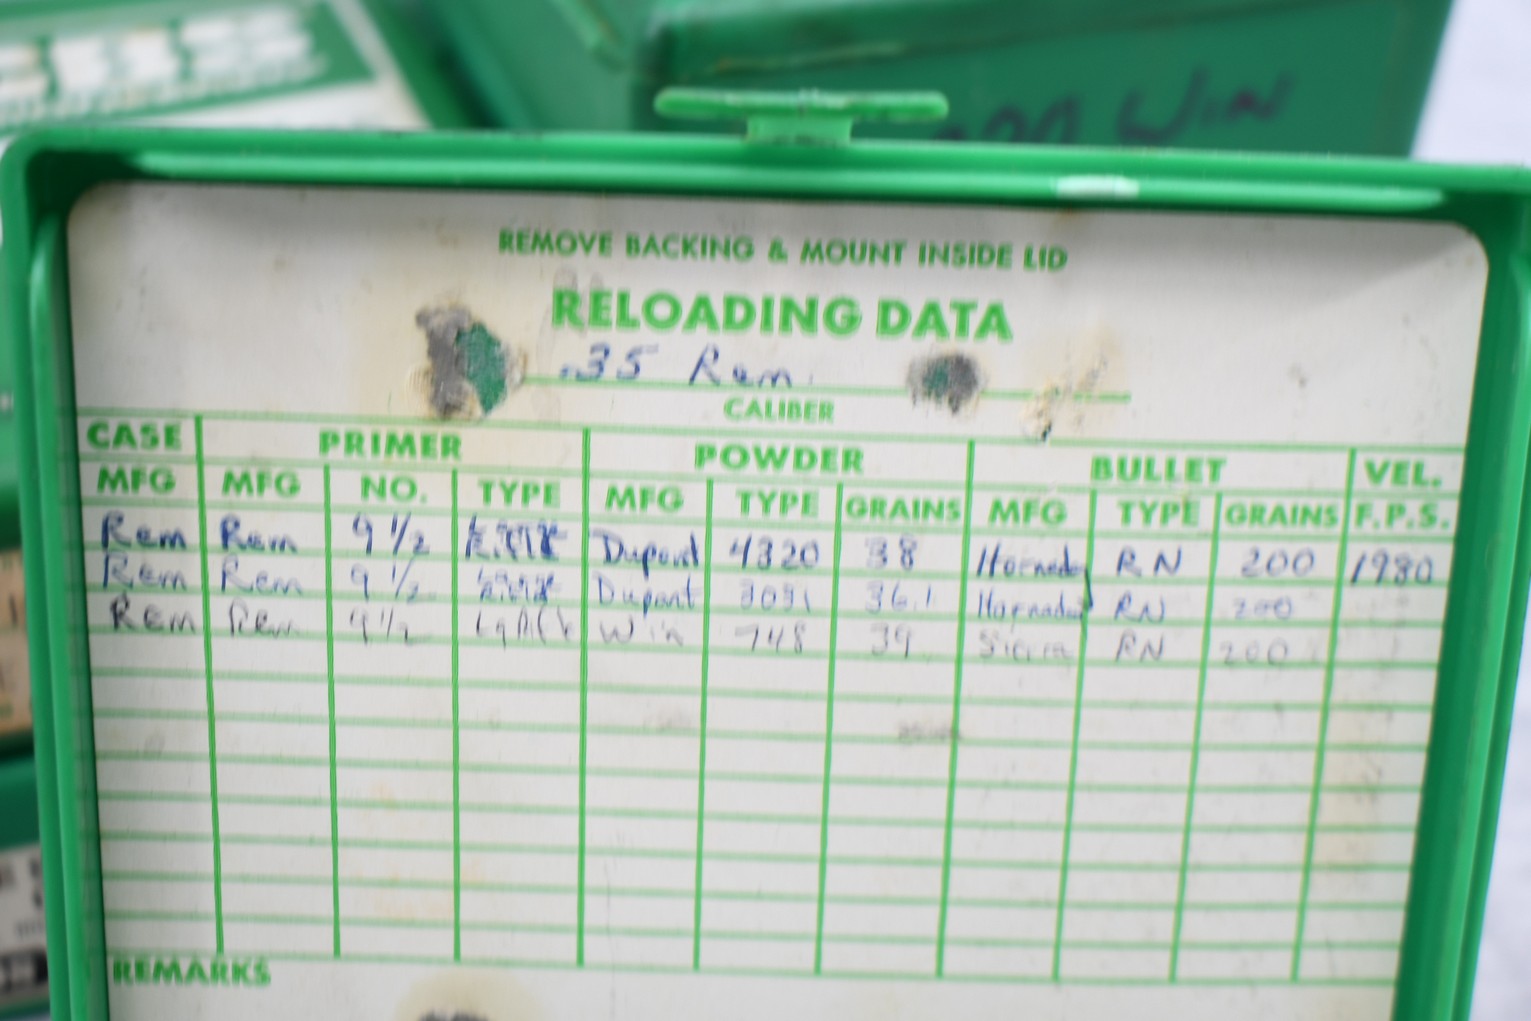 WIN
REMOVE BACKING & MOUNT INSIDE LID
RELOADING DATA
.35 Rem.
CALIBER
CASE PRIMER POWDER BULLET VEL.
MFG MFG NO. TYPE MFG TYPE GRAINS MFG TYPE GRAINS F.P.S.
Rem Rem 9 1/2 Dupont 4320 38 Hornady RN 200 1980
Rem Rem 9 1/2 Dupont 3031 36.1 Hornady RN 200
Rem Rem 9 1/2 Lg Rifle Win 748 39 Sierra RN 200
REMARKS